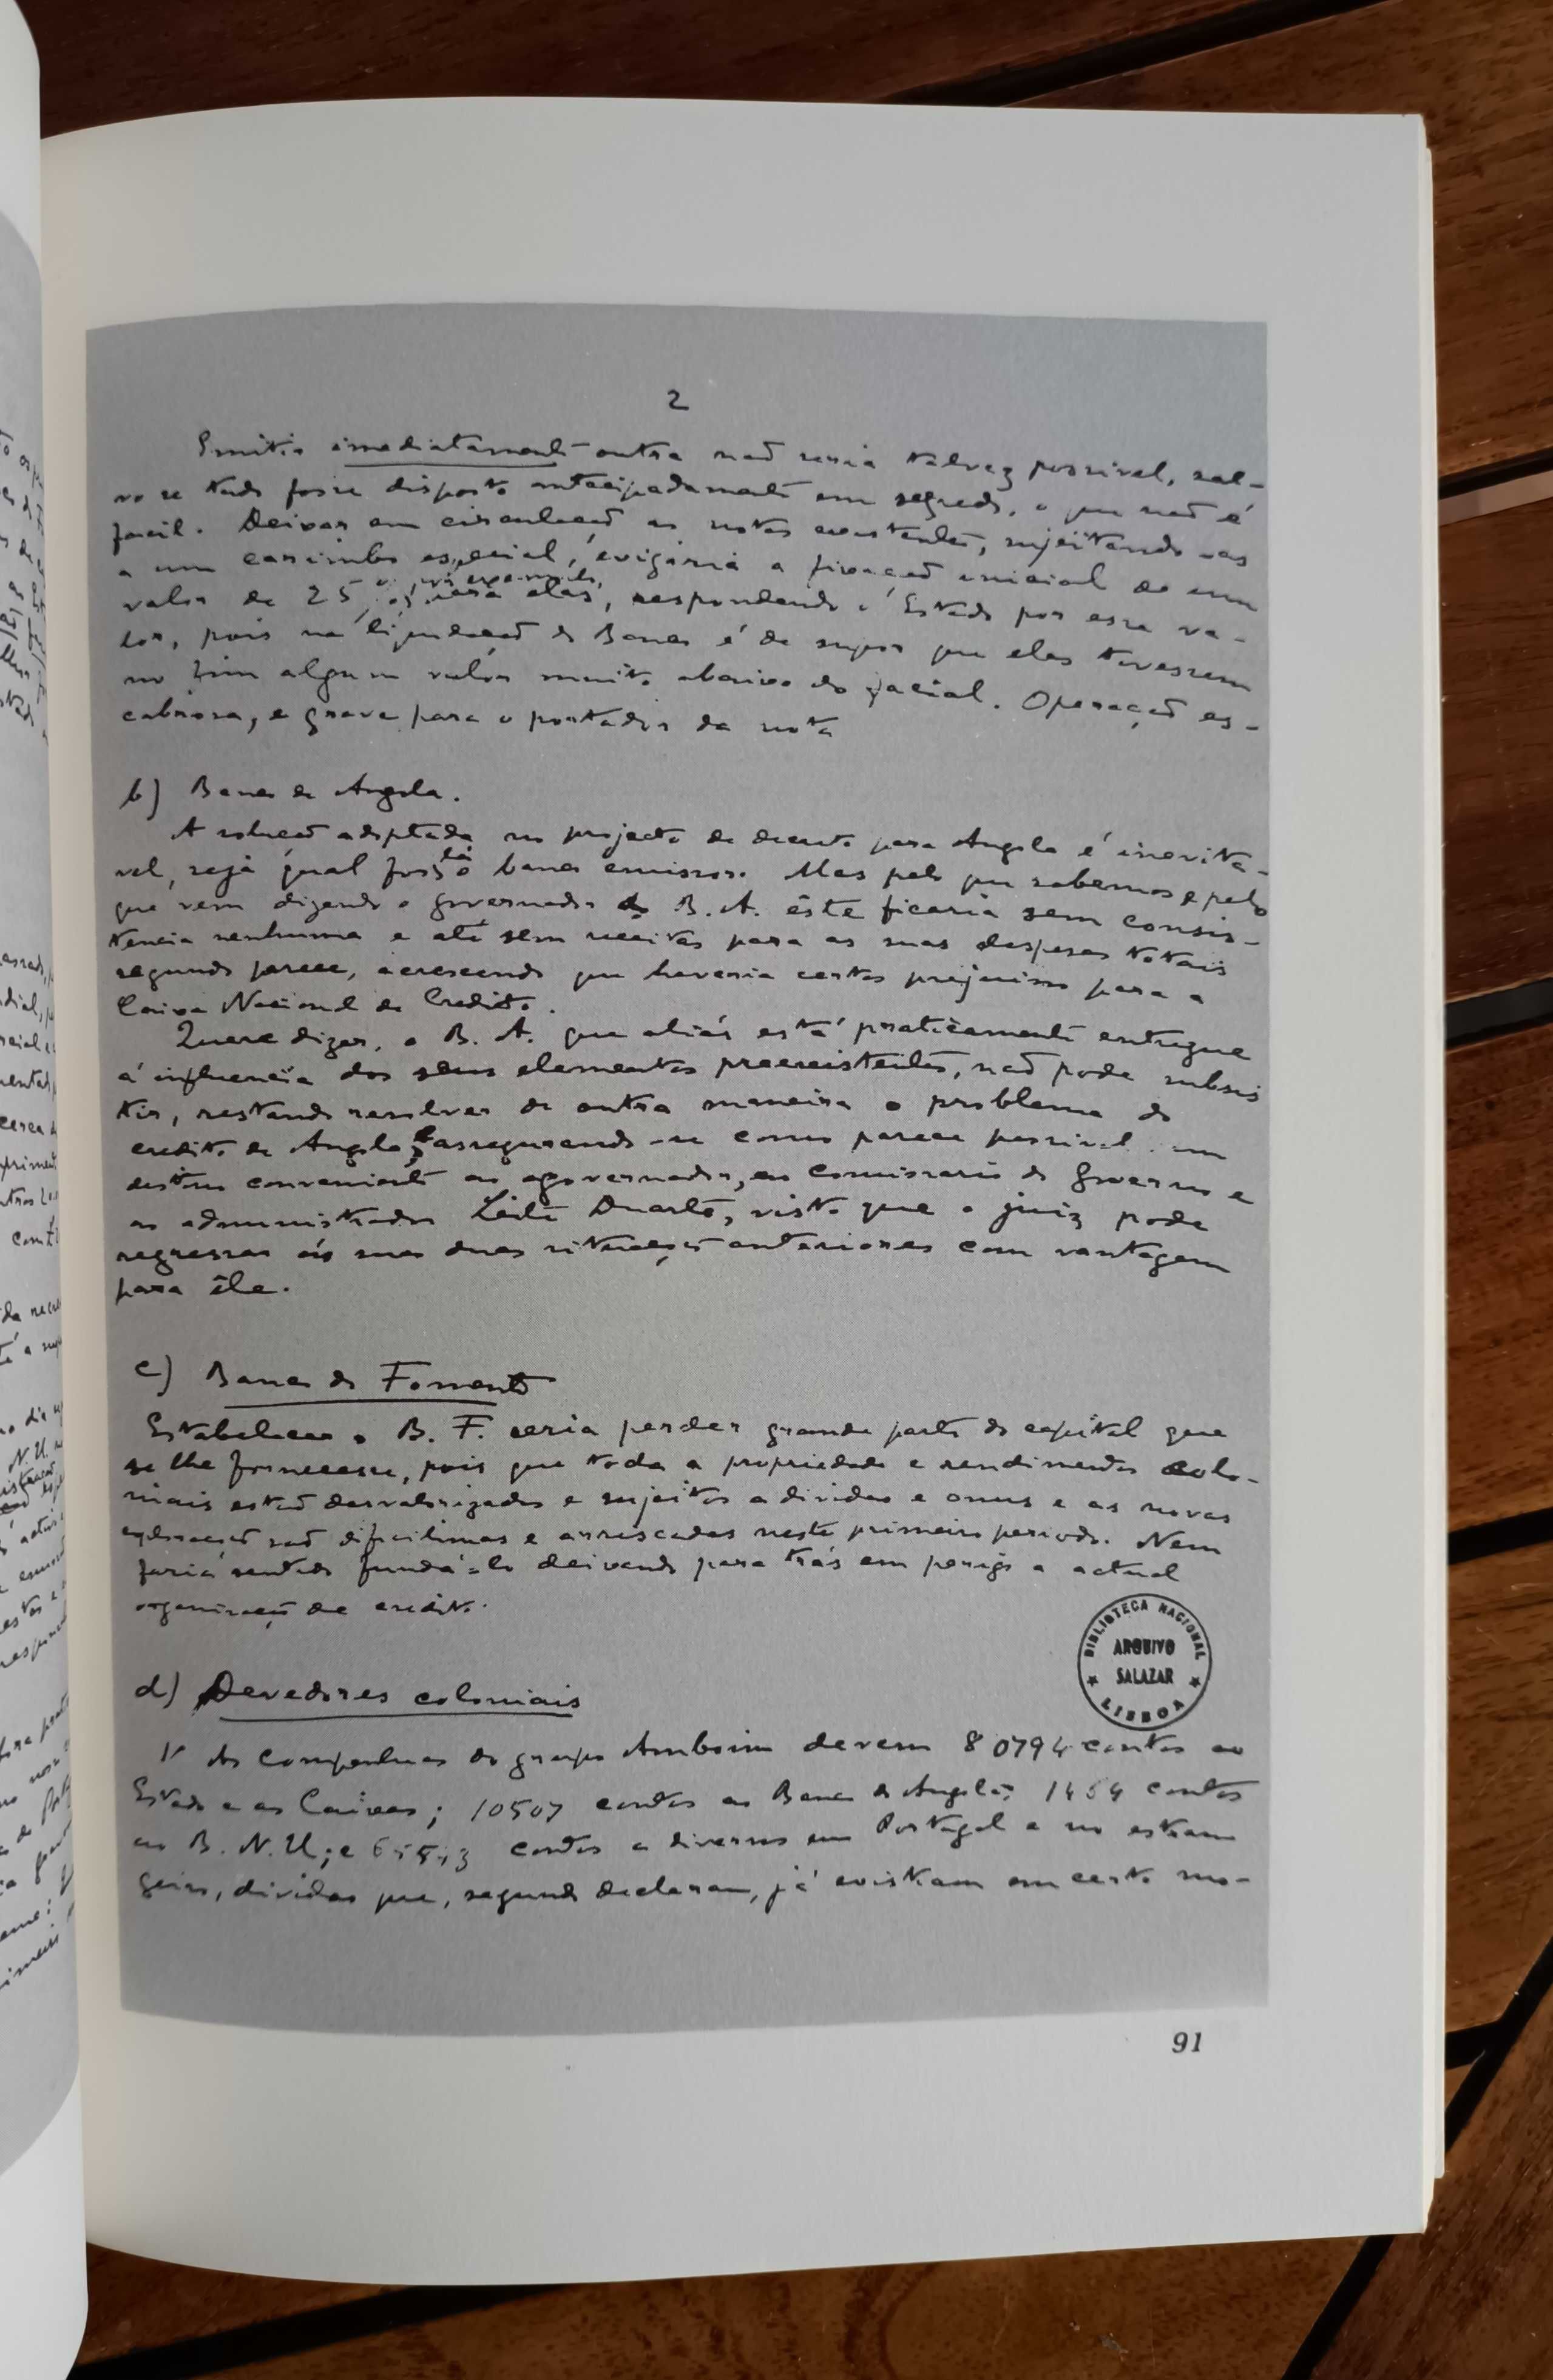 2
Emitir imediatamente outra não seria talvez possivel, sal-
vo se tudo fosse disposto antecipadamente em segredo, o que não é
facil. Deixar em circulação as notas existentes, sujeitando-as
a um carimbo especial, exigiria a fixação inicial de um
valor de 25 para elas, respondendo o Estado por esse va-
lor, pois na liquidação do Banco é de supor que elas tivessem
no fim algum valor muito abaixo do facial. Operação es-
cabrosa, e grave para o portador da nota
b) Banco de Angola.
A solução adoptada no projecto de decreto para Angola é inevita-
vel, seja qual fôr lá o banco emissor. Mas pelo que sabemos e pelo
que vem dizendo o governador do B. A. êste ficaria sem consis-
tencia nenhuma e até sem receitas para as suas despesas totais
segundo parece, acrescendo que haveria certos prejuisos para a
Caixa Nacional de Credito.
Quere dizer, o B. A. que aliás está praticamente entregue
á influencia dos seus elementos preexistentes, não pode subsis
tir, restando resolver de outra maneira o problema do
credito de Angola, e assegurando-se como parece possivel um
destino conveniente ao governador, ao comissario do Governo e
ao administrador Leite Duarte, visto que o juiz pode
regressar ás suas duas situações anteriores com vantagem
para êle.
c) Banco do Fomento
Estabelecer o B. F. seria perder grande parte do capital que
se lhe fornecesse, pois que toda a propriedade e rendimentos colo-
niais estão desvalorizados e sujeitos a dividas e onus e as novas
explorações são dificilimas e arriscadas neste primeiro periodo. Nem
faria sentido fundá-lo deixando para trás em perigo a actual
organização de credito.
d) Devedores coloniais
1º As companhias do grupo Amboim devem 80794 contos ao
Estado e as Caixas; 10507 contos ao Banco de Angola; 1454 contos
ao B. N. U; e contos a diversos em Portugal e no estran
geiro, dividas que, segundo declaram, já existiam em certo mo-
BIBLIOTECA NACIONAL
ARQUIVO
SALAZAR
LISBOA
91